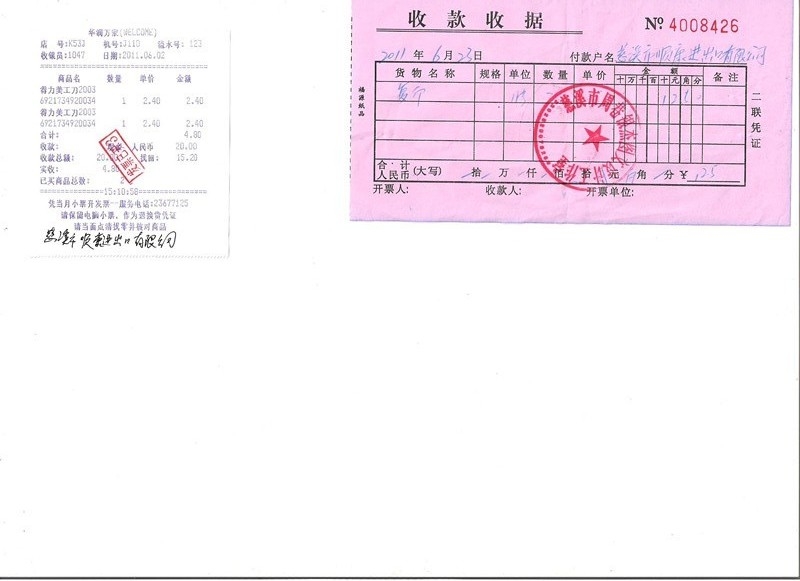 华润万家(WELCOME)
店 号:K533 机号:J110 流水号: 123
收银员:1047 日期:2011.06.02
商品名 数量 单价 金额
得力美工刀2003
6921734920034 1 2.40 2.40
得力美工刀2003
6921734920034 1 2.40 2.40
合计: 4.80
收款: 人民币 20.00
收款总额: 20.00 找回: 15.20
实收: 4.80
已买商品总数:
15:10:58
凭当月小票开发票--服务电话:23677125
请保留电脑小票，作为退换货凭证
请当面点清找零并核对商品
慈溪市 进出口有限公司
收款收据
№ 4008426
2011 年 6 月 23 日 付款户名 慈溪市顺康进出口有限公司
货物名称 规格 单位 数量 单价 金额 备注
十万千百十元角分
复印
合计 人民币 (大写) 拾 万 仟 佰 拾 元 角 分 ¥ 125
开票人: 收款人: 开票单位:
二联凭证
福源纸品
慈溪市周巷